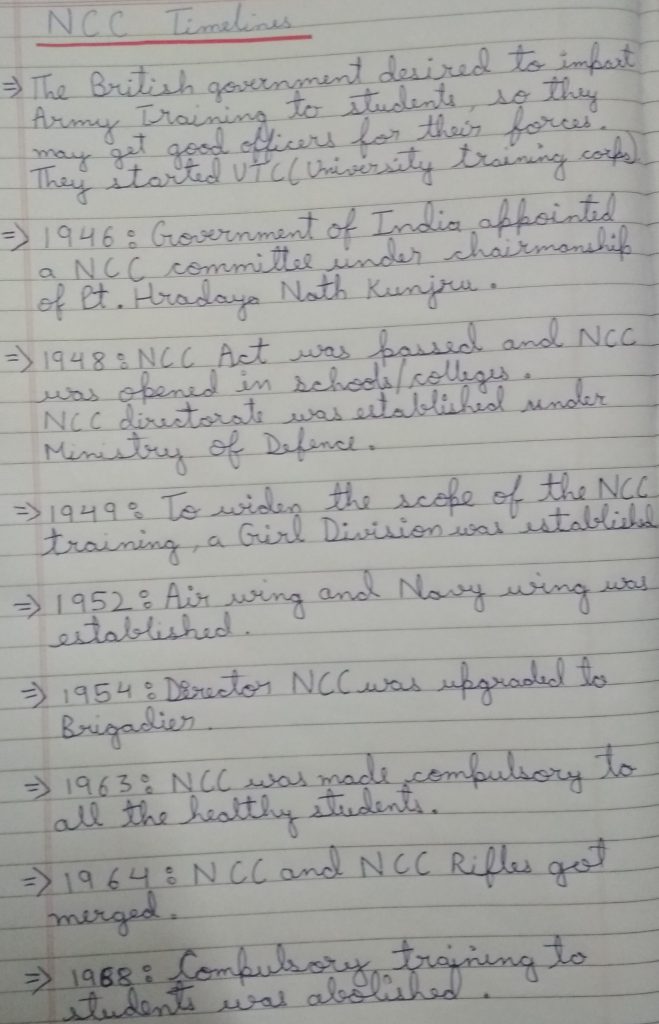 NCC Timelines
⇒ The British government desired to impart
Army Training to students, so they
may get good officers for their forces.
They started UTC (University training corps)
⇒ 1946: Government of India appointed
a NCC committee under chairmanship
of Pt. Hradaya Nath Kunjru.
⇒ 1948: NCC Act was passed and NCC
was opened in schools/colleges.
NCC directorate was established under
Ministry of Defence.
⇒ 1949: To widen the scope of the NCC
training, a Girl Division was established
⇒ 1952: Air wing and Navy wing was
established.
⇒ 1954: Director NCC was upgraded to
Brigadier.
⇒ 1963: NCC was made compulsory to
all the healthy students.
⇒ 1964: NCC and NCC Rifles got
merged.
⇒ 1968: Compulsory training to
students was abolished.